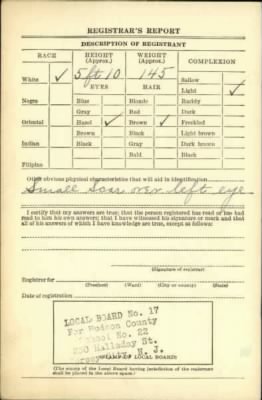 REGISTRAR'S REPORT
DESCRIPTION OF REGISTRANT
RACE HEIGHT (Approx.) WEIGHT (Approx.) COMPLEXION
White ✓ 5 ft 10 145 Sallow
EYES HAIR Light ✓
Negro Blue Blonde Ruddy
Gray Red Dark
Oriental Hazel ✓ Brown ✓ Freckled
Brown Black Light brown
Indian Black Gray Dark brown
Bald Black
Filipino
Other obvious physical characteristics that will aid in identification
Small scar over left eye
I certify that my answers are true; that the person registered has read or has had
read to him his own answers; that I have witnessed his signature or mark and that
all of his answers of which I have knowledge are true, except as follows:
(Signature of registrar)
Registrar for
(Precinct) (Ward) (City or county) (State)
Date of registration
LOCAL BOARD No. 17
For Hudson County
School No. 22
Halladay St.
Jersey City, N. J.
(STAMP OF LOCAL BOARD)
(The stamp of the Local Board having jurisdiction of the registrant
shall be placed in the above space.)